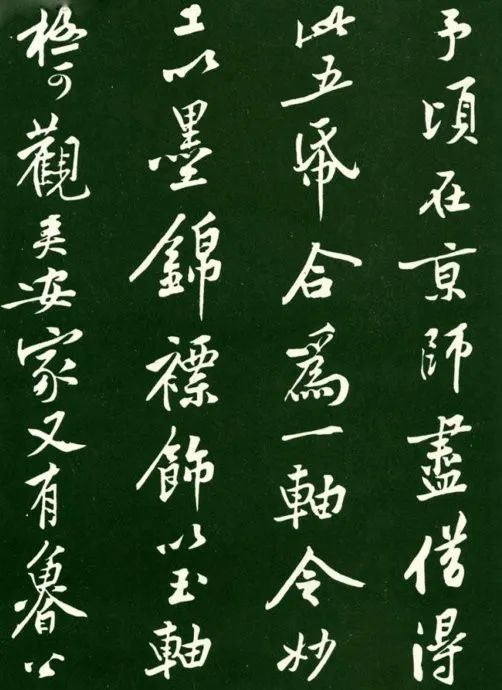 予頃在京師盡借得
此五帋合爲一軸令妙
工以墨錦褾飾以玉軸
極可觀安家又有魯公